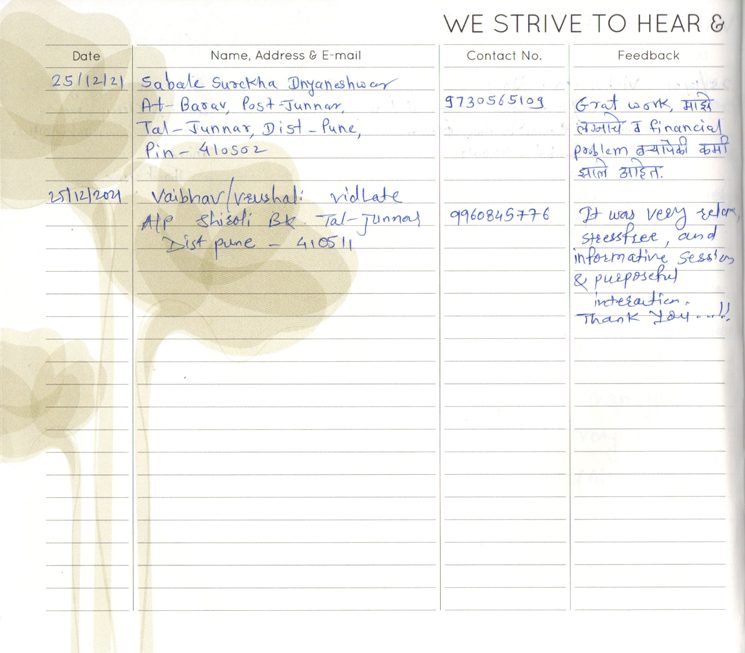 WE STRIVE TO HEAR &
Date Name, Address & E-mail Contact No. Feedback
25/12/21 Sabale Surekha Dnyaneshwar
At-Barav, Post-Junnar, 9730565109 Grat work, माझे
Tal-Junnar, Dist-Pune, लग्नाचे व financial
Pin-410502 problem बऱ्यापैकी कमी
झाले आहेत.
25/12/2021 Vaibhav/Vrushali Vidhate
A/P Shiroli Bk Tal-Junnar 9960845776 It was very relax,
Dist pune - 410511 stressfree, and
informative session
& purposeful
interaction.
Thank You....!!